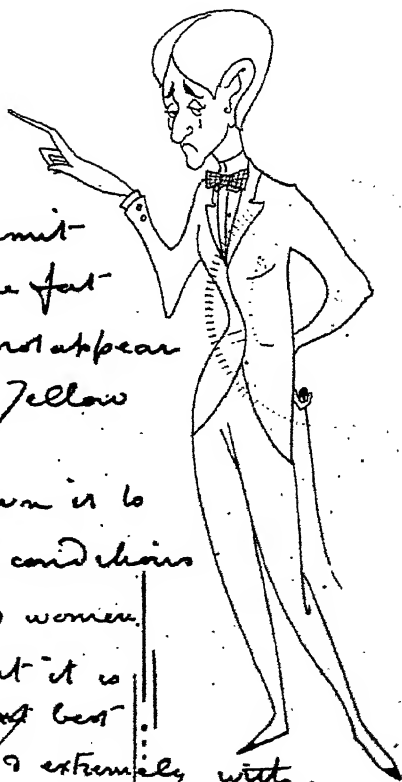 mit
e fat
not appear
Yellow
wn is to
conditions
women
t it is
t best
extremely with